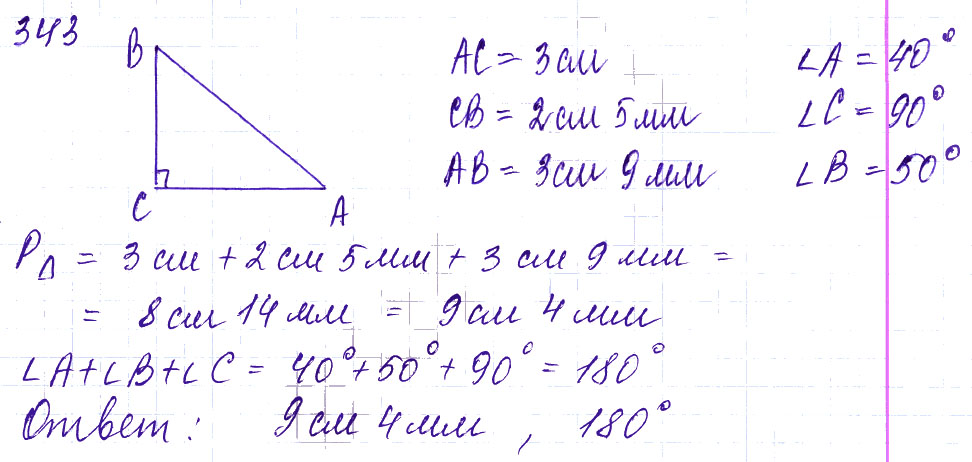 343
B
C
A
AC = 3 см
∠A = 40°
CB = 2 см 5 мм
∠C = 90°
AB = 3 см 9 мм
∠B = 50°
P△ = 3 см + 2 см 5 мм + 3 см 9 мм =
= 8 см 14 мм = 9 см 4 мм
∠A + ∠B + ∠C = 40° + 50° + 90° = 180°
Ответ: 9 см 4 мм , 180°